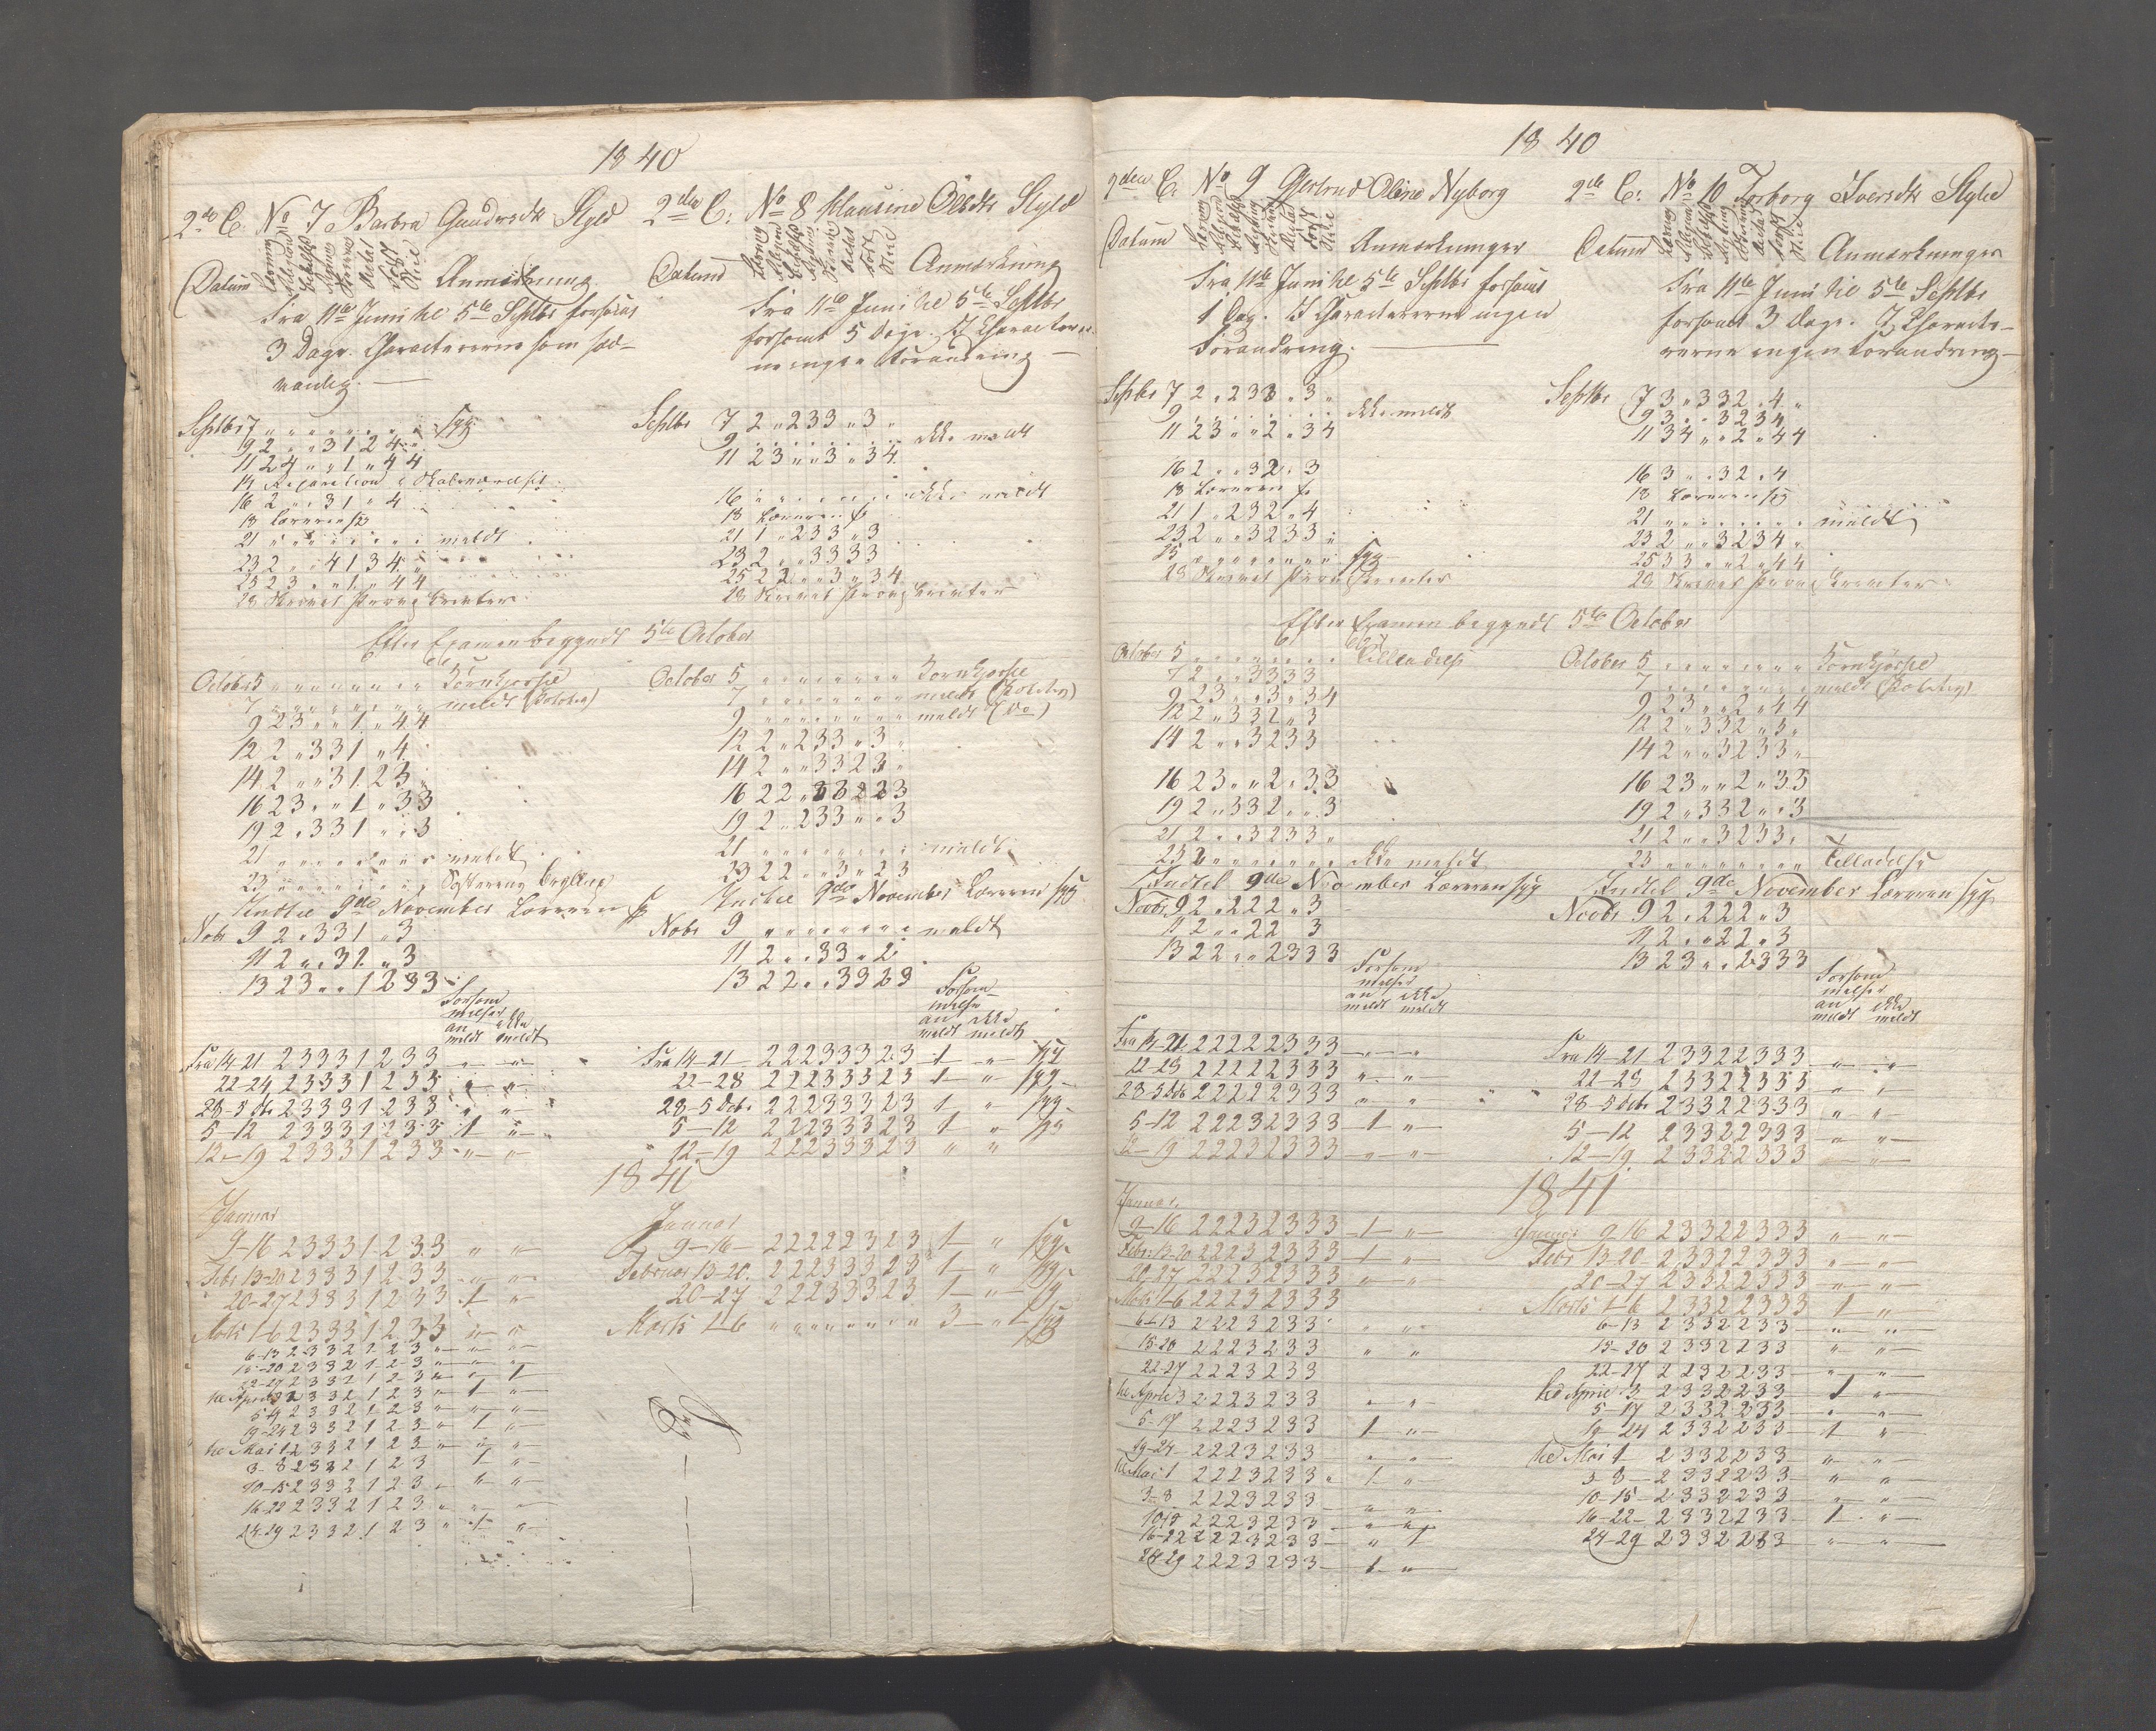 1840
2de C. No 7 Barbra Gundersdr Skyld
Datum Anmærkning
Fra 11te Juni til 5te Septbr forsømt
3 Dage. Characterene som sæd-
vanlig.
Septbr 7 " " " " " " " " syg
9 2 " " 3 1 2 4 "
11 2 4 " " 1 " 4 4
14 Reparation i Skolen
16 2 " " 3 1 " 4
18 Læreren syg
21 " " " " " " " " meldt
23 2 " " 4 1 3 4 "
25 2 3 " " 1 " 4 4
28 Skrevet Prøveskrifter
2den C: No 8 Klausine Olsdr Skyld
Datum Anmærkning
Fra 11te Juni til 5te Septbr
forsømt 5 Dage. I Characterer-
ne ingen Forandring
Septbr 7 2 " 2 3 3 " 3 "
9 " " " " " " " " ikke meldt
11 2 3 " " 3 " 3 4
16 " " " " " " " " ikke meldt
18 Læreren s.
21 1 " 2 3 3 " 3
23 2 " " 3 3 3 3
25 2 2 " " 3 " 3 4
28 Skrevet Prøveskrifter
Efter Examen begyndt 5te October
Octobr 5 " " " " " " " " Kornkjørsel
7 " " " " " " " " meldt (Poteter)
9 2 3 " " 1 " 4 4
12 2 " 3 3 1 " 4
14 2 " " 3 1 2 3 "
16 2 3 " " 1 " 3 3
19 2 " 3 3 1 " " 3
21 " " " " " " " " meldt
23 " " " " " " " " Søsterens Bryllup
Indtil 9de November Læreren syg
Nobr 9 2 " 3 3 1 " 3
11 2 " " 3 1 " 3
13 2 3 " " 1 2 3 3
Forsøm
melser
an ikke
meldt meldt
Fra 14-21 2 3 3 3 1 2 3 3 " "
22-24 2 3 3 3 1 2 3 3 " "
28-5 Dcbr 2 3 3 3 1 2 3 3 " "
5-12 2 3 3 3 1 2 3 3 1 "
12-19 2 3 3 3 1 2 3 3 " "
October 5 " " " " " " " " Kornkjørsel
7 " " " " " " " " meldt (Poteter)
9 " " " " " " " " meldt (Do)
12 2 " 2 3 3 " 3 "
14 2 " " 3 3 2 3 "
16 2 2 " 3 3 2 3 3
19 2 " 2 3 3 " " 3
21 " " " " " " " " meldt
23 2 2 " " 3 " 2 3
Indtil 9de November Læreren syg
Nobr 9 " " " " " " " " meldt
11 2 " " 3 3 " 2
13 2 2 " " 3 3 2 3
Forsøm-
melse
an ikke
meldt meldt
Fra 14-21 2 2 2 3 3 3 2 3 1 " syg
22-28 2 2 2 3 3 3 2 3 1 " syg
28-5 Dcbr 2 2 2 3 3 3 2 3 1 " syg
5-12 2 2 2 3 3 3 2 3 1 " syg
12-19 2 2 2 3 3 3 2 3 " "
1841
Januar
9-16 2 3 3 3 1 2 3 3 " "
Febr 13-20 2 3 3 3 1 2 3 3 " "
20-27 2 3 3 3 1 2 3 3 1 "
Marts 1-6 2 3 3 3 1 2 3 3 " "
6-13 2 3 3 2 1 2 3 " " "
15-20 2 3 3 2 1 2 3 " " "
22-27 2 3 3 2 1 2 3 " " 1
til April 3 2 3 3 2 1 2 3 " 1 "
5-17 2 3 3 2 1 2 3 " " "
19-24 2 3 3 2 1 2 3 " 1 "
til Mai 1 2 3 3 2 1 2 3 " " "
3-8 2 3 3 2 1 2 3 1 "
10-15 2 3 3 2 1 2 3 " " "
16-22 2 3 3 2 1 2 3 " " "
24-29 2 3 3 2 1 2 3 " 1 "
Januar
9-16 2 2 2 2 2 3 2 3 1 " syg
Februar 13-20. 2 2 2 3 3 3 2 3 1 " syg
20-27 2 2 2 3 3 3 2 3 1 "
Marts 1-6 " " " " " " " " 3 " syg
1840
2den C. No 9 Gjertrud Oline Nyborg
Datum Anmærkninger
Fra 11te Juni til 5te Septbr forsømt
1 Dag. I Characterene ingen
Forandring.
Septbr 7 2 " 2 3 3 " 3 "
9 " " " " " " " " ikke meldt
11 2 3 " " 2 " 3 4
16 2 " " 3 2 " 3
18 Læreren s.
21 1 " 2 3 2 " 4
23 2 " " 3 2 3 3 "
25 " " " " " " " " syg
28 Skrevet Prøveskrifter
2de C: No 10 Torborg Iversdr Skyld
Datum Anmærkninger
Fra 11te Juni til 5te Septbr
forsømt 3 Dage. I Characte-
rerne ingen Forandring
Septbr 7 3 " 3 3 2 " 4 "
9 3 " " 3 2 3 4
11 3 4 " " 2 " 4 4
16 3 " " 3 2 " 4
18 Læreren syg
21 " " " " " " " " meldt
23 2 " " 3 2 3 4 "
25 3 3 " " 2 " 4 4
28 Skrevet Prøveskrifter
Efter Examen begyndt 5te October
October 5 " " " " " " " " Tilladelse
7 2 " " 3 3 3 3
9 2 3 " " 3 " 3 4
12 2 " 3 3 2 " 3
14 2 " " 3 2 3 3
16 2 3 " " 2 " 3 3
19 2 " 3 3 2 " " 3
21 2 " " 3 2 3 3 "
23 " " " " " " " " ikke meldt
Indtil 9de November Læreren syg
Novbr 9 2 " 2 2 2 " 3
11 2 " " 2 2 3
13 2 2 " " 2 3 3 3
Forsøm
melser
an ikke
meldt meldt
Fra 14-21 2 2 2 2 2 3 3 3 " "
22-28 2 2 2 2 2 3 3 3 " "
28-5 Dcbr 2 2 2 2 2 3 3 3 " "
5-12 2 2 2 3 2 3 3 3 1 "
12-19 2 2 2 3 2 3 3 3 " "
October 5 " " " " " " " " Kornkjørsel
7 " " " " " " " " meldt (Poteter)
9 2 3 " " 2 " 4 4
12 2 " 3 3 2 " 3 "
14 2 " " 3 2 3 3 "
16 2 3 " " 2 " 3 3
19 2 " 3 3 2 " " 3
21 2 " " 3 2 3 3 "
23 " " " " " " " " Tilladelse
Indtil 9de November Læreren syg
Novbr 9 2 " 2 2 2 " 3
11 2 " " 2 2 " 3
13 2 3 " " 2 3 3 3
Forsøm
melser
an ikke
meldt meldt
Fra 14-21 2 3 3 2 2 3 3 3 " "
22-28 2 3 3 2 2 3 3 3 " "
28-5 Dcbr 2 3 3 2 2 3 3 3 " "
5-12 2 3 3 2 2 3 3 3 " "
12-19 2 3 3 2 2 3 3 3 "
1841
Januar
9-16 2 2 2 3 2 3 3 3 1 "
Febr 13-20 2 2 2 3 2 3 3 3 1 "
20-27 2 2 2 3 2 3 3 3 " "
Marts 1-6 2 2 2 3 2 3 3 3
6-13 2 2 2 3 2 3 3 " "
15-20 2 2 2 3 2 3 3 " "
22-27 2 2 2 3 2 3 3
til April 3 2 2 2 3 2 3 3 " "
5-17 2 2 2 3 2 3 3 1 "
19-24 2 2 2 3 2 3 3 " "
til Mai 1 2 2 2 3 2 3 3 1 "
3-8 2 2 2 3 2 3 3 " "
10-15 2 2 2 3 2 3 3 " "
16-22 2 2 2 3 2 3 3 " 1
24-29 2 2 2 3 2 3 3 1 "
Januar 9-16 2 3 3 2 2 3 3 3 " "
Febr 13-20 2 3 3 2 2 3 3 3 " "
20-27 2 3 3 2 2 3 3 3 " "
Marts 1-6 2 3 3 2 2 3 3 3 1 "
6-13 2 3 3 2 2 3 3 " "
15-20 2 3 3 2 2 3 3
22-27 2 2 3 2 2 3 3 " "
til April 3 2 3 3 2 2 3 3 1 "
5-17 2 3 3 2 2 3 3 " "
19-24 2 3 3 2 2 3 3 1 "
til Mai 1 2 3 3 2 2 3 3 " "
3-8 2 3 3 2 2 3 3 " "
10-15 2 3 3 2 2 3 3 " "
16-22 2 3 3 2 2 3 3 1 "
24-29 2 3 3 2 2 3 3 " "